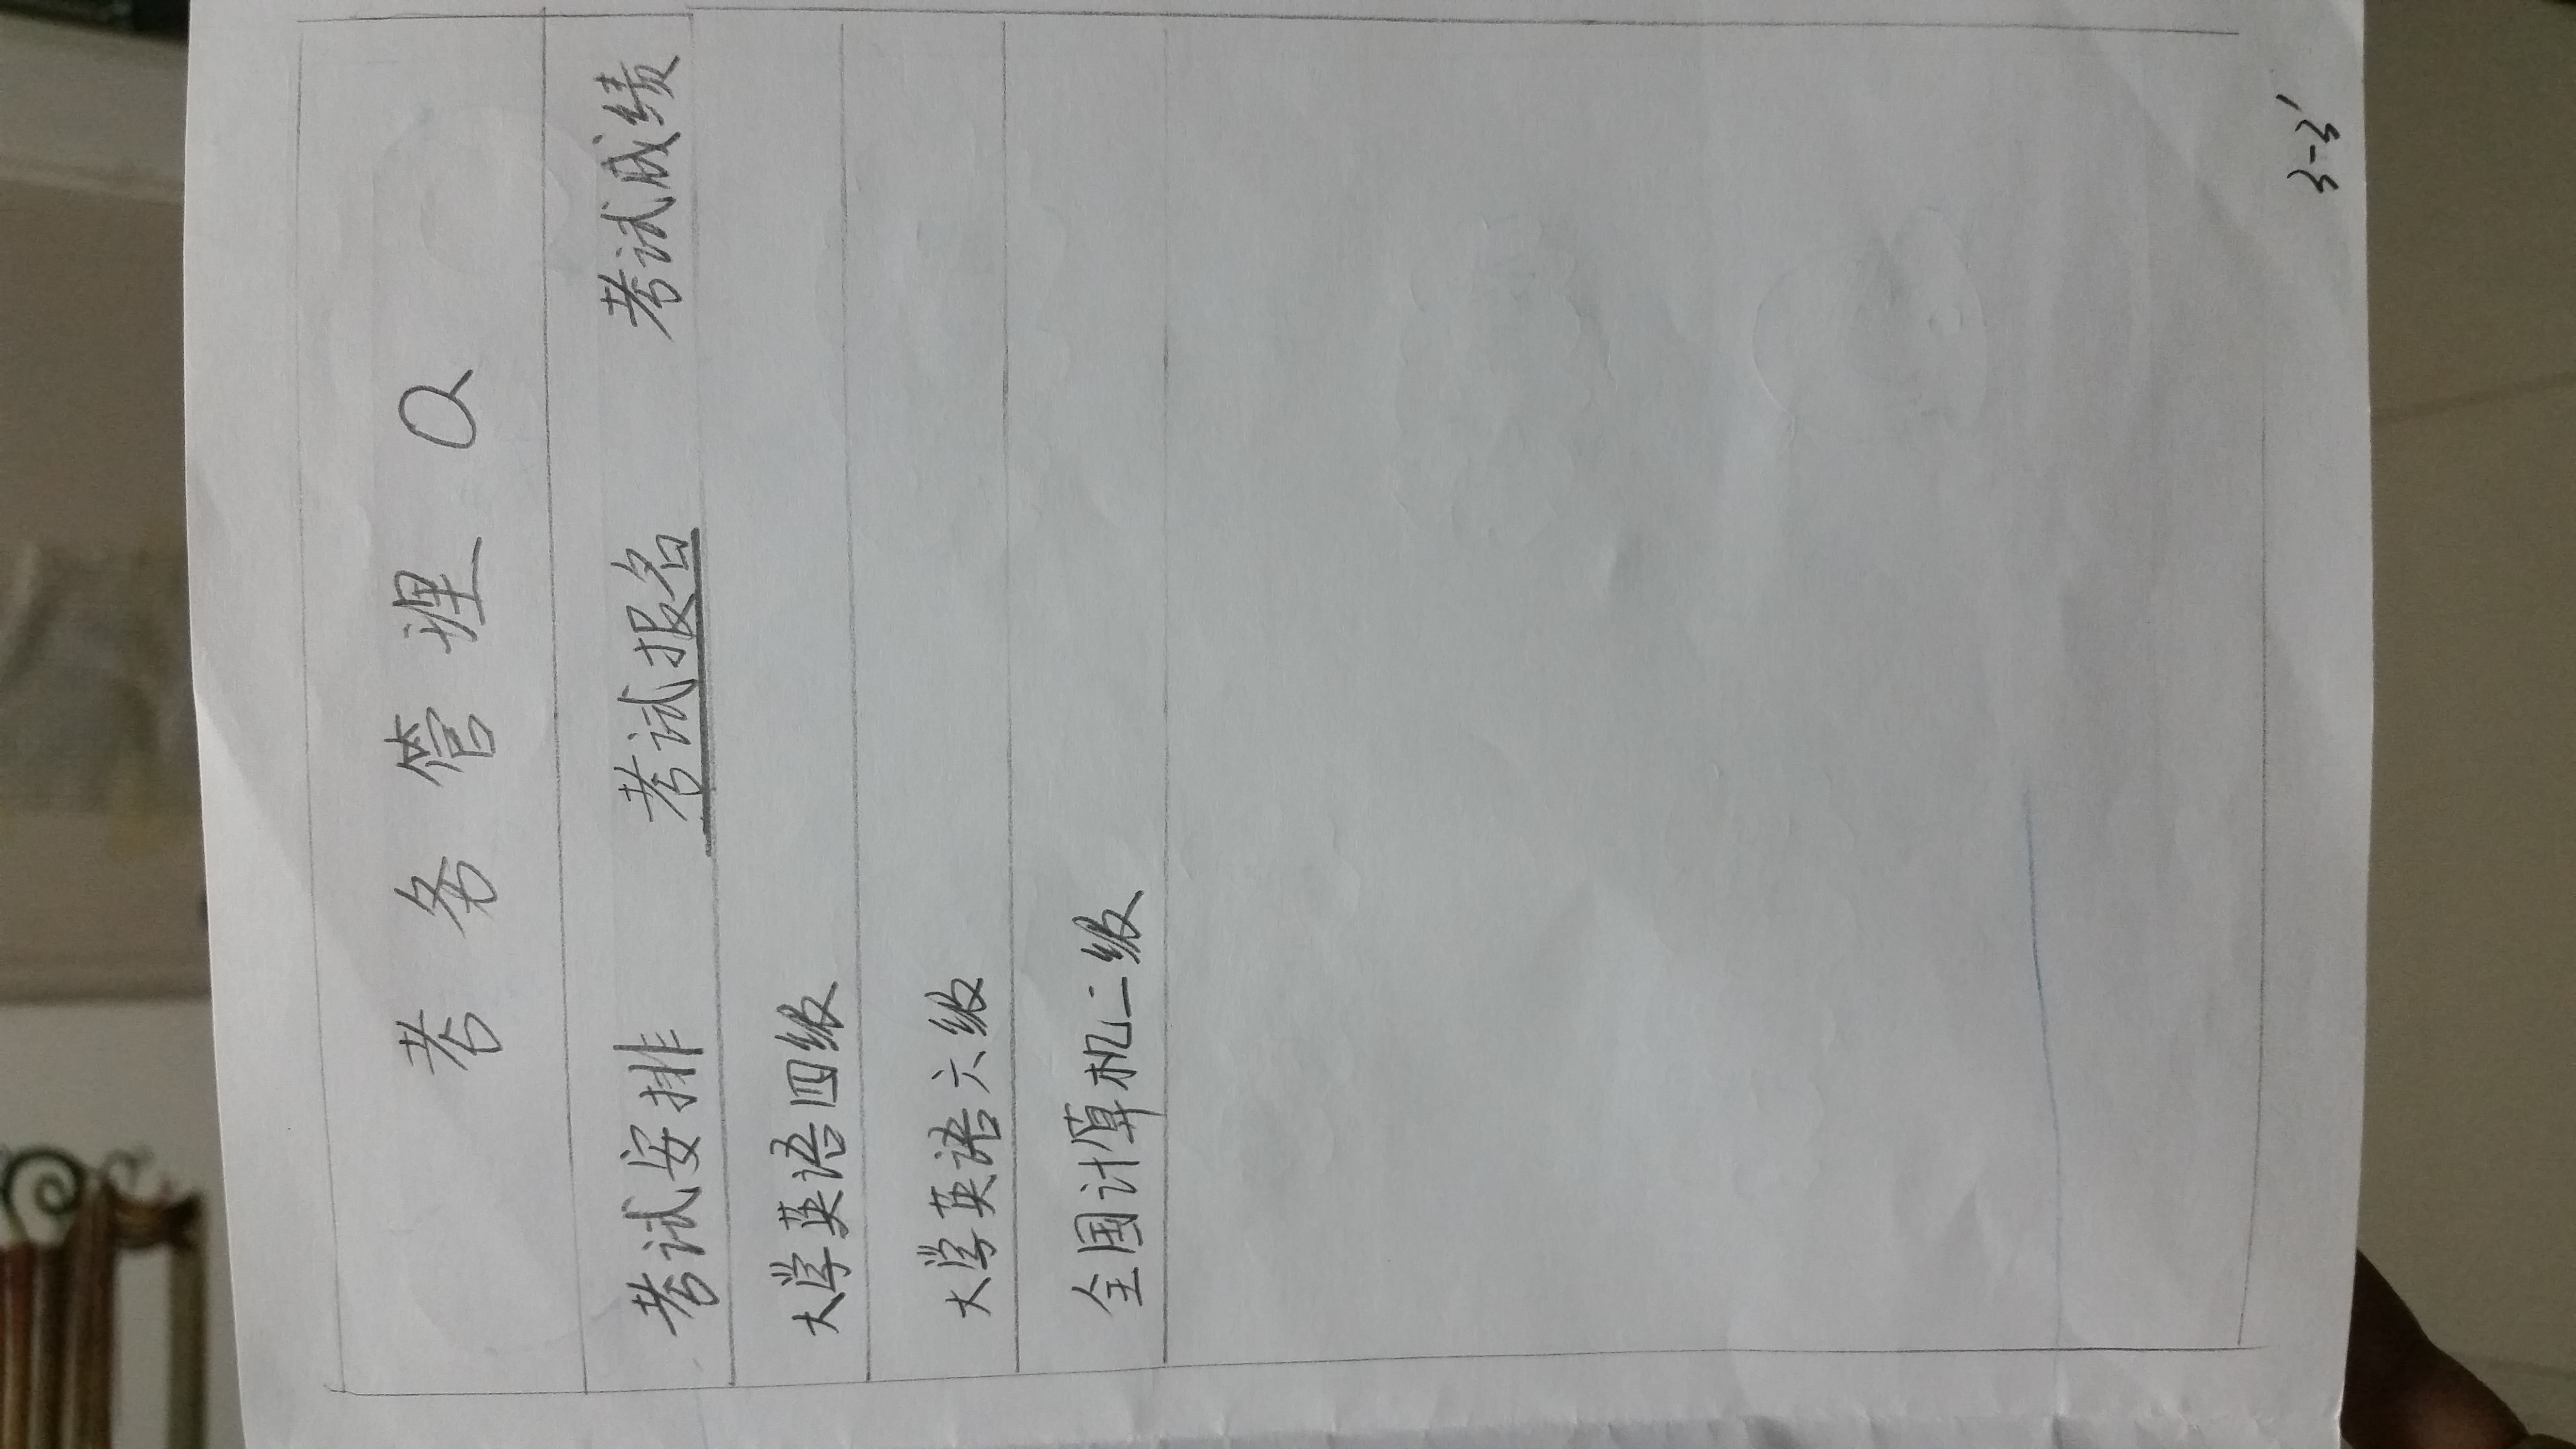 考务管理
考试安排 考试报名 考试成绩
大学英语四级
大学英语六级
全国计算机二级
3-3'